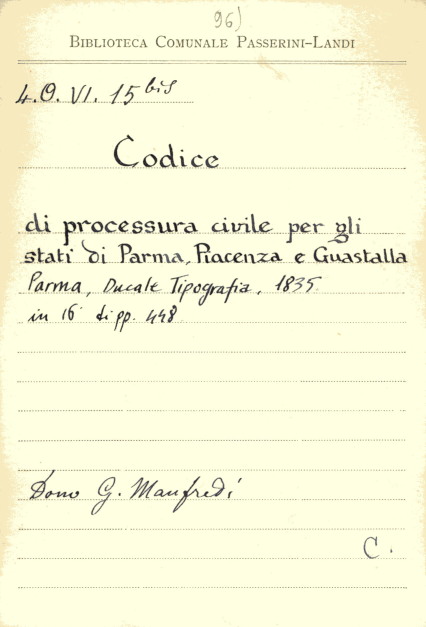 96)
BIBLIOTECA COMUNALE PASSERINI-LANDI
4.O. VI. 15 bis
Codice
di processura civile per gli
stati di Parma, Piacenza e Guastalla
Parma, Ducale Tipografia, 1835
in 16° di pp. 448
Dono G. Manfredi
C.